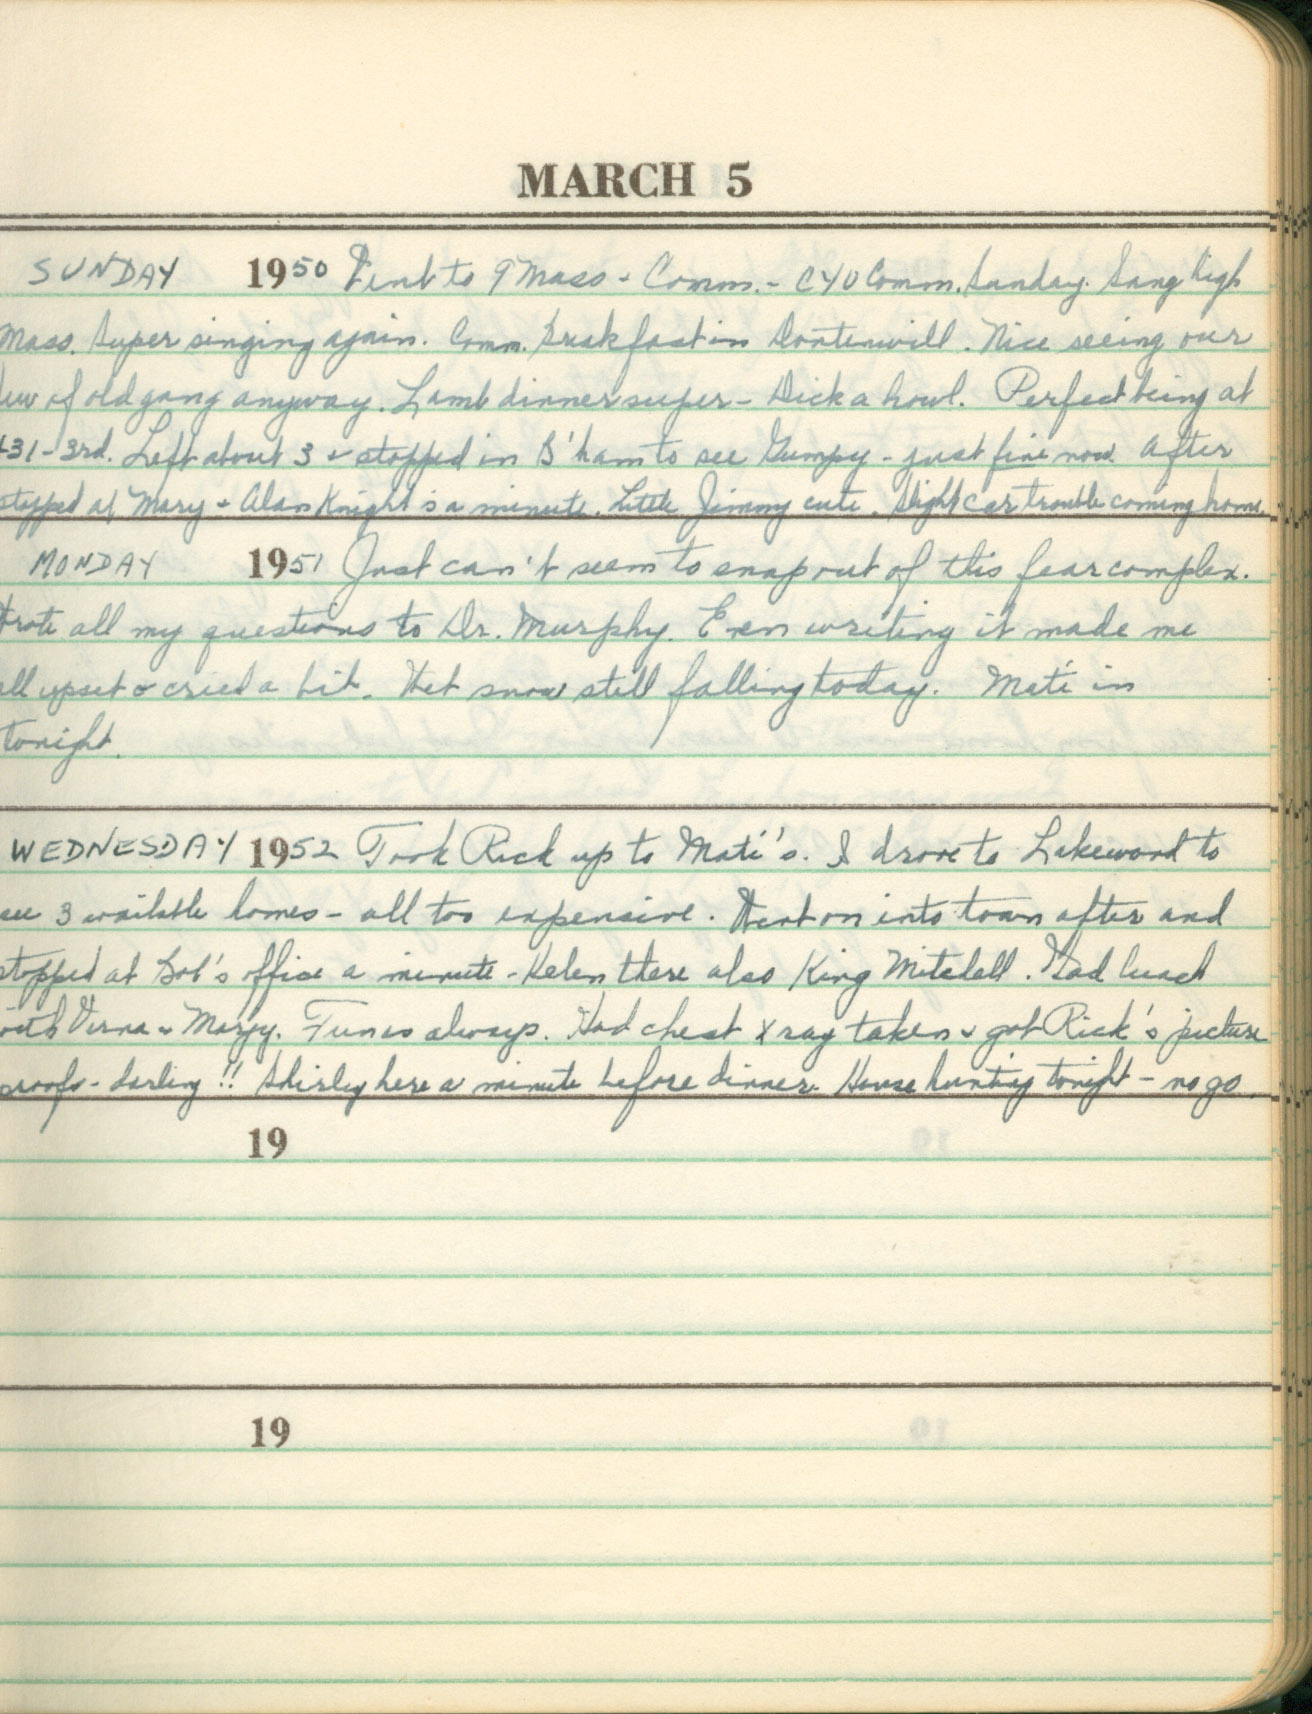 MARCH 5
SUNDAY 1950 Went to 9 Mass + Comm. - CYO Comm. Sunday. Sang high
Mass. Super singing again. Comm. Breakfast in Dontenwill. Nice seeing our
few of old gang anyway. Lamb dinner super - Dick a howl. Perfect being at
431 - 3rd. Left about 3 + stopped in B'ham to see Gumpy - just fine now. After
stopped at Mary + Alan Knight's a minute. Little Jimmy cute. Slight car trouble coming home.
MONDAY 1951 Just can't seem to snap out of this fear complex.
Wrote all my questions to Dr. Murphy. Even writing it made me
all upset & cried a bit. Wet snow still falling today. Mati in
tonight.
WEDNESDAY 1952 Took Rick up to Mati's. I drove to Lakewood to
see 3 available homes - all too expensive. Went on into town after and
stopped at Bob's office a minute - Helen there also King Mitchell. Had lunch
with Verna + Margy. Fun as always. Had chest xray taken + got Rick's picture
proofs - darling!! Shirley here a minute before dinner. House hunting tonight - no go.
19
19